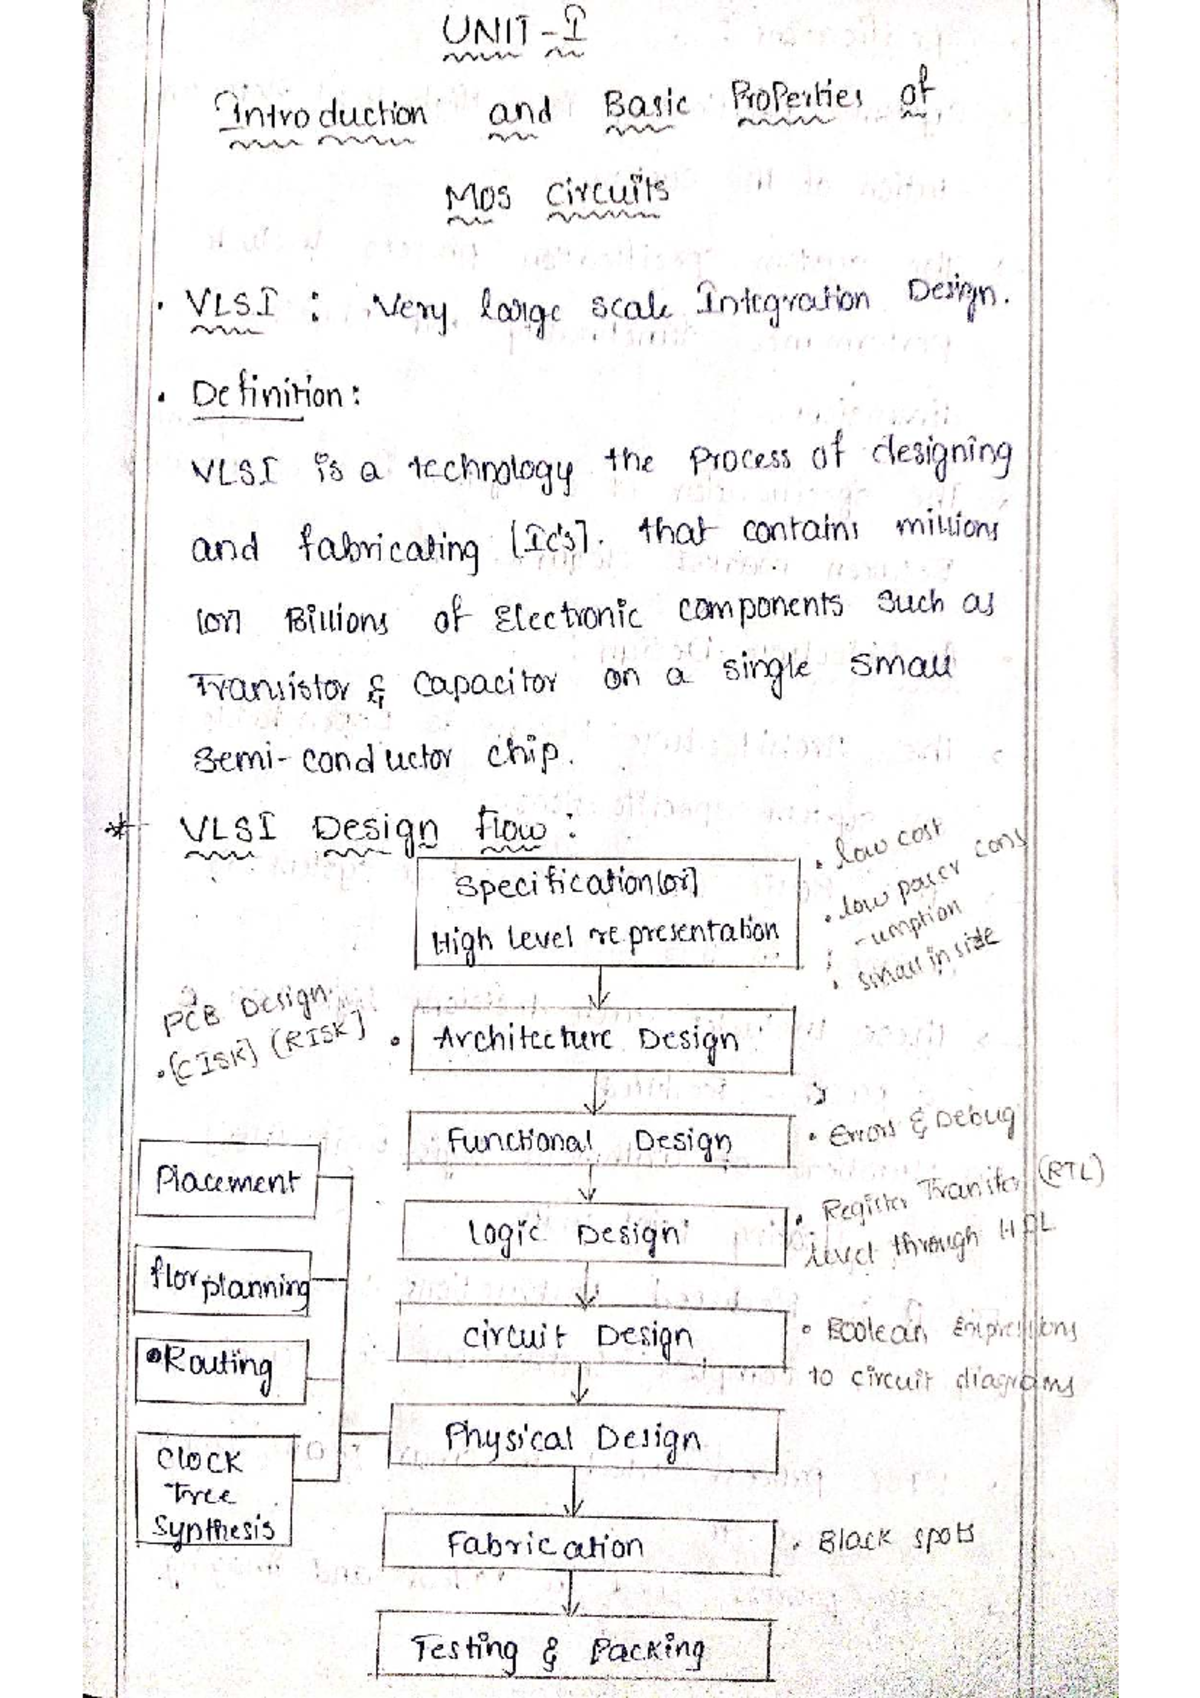 UNIT-I
Introduction and Basic Properties of
MOS Circuits
• VLSI : Very large scale Integration Design.
• Definition:
VLSI is a technology the process of designing
and fabricating [Ic's]. that contains millions
[or] Billions of Electronic components such as
Transistor & Capacitor on a single small
semi-conductor chip.
* VLSI Design flow:
Specification[or]
High level representation
• low cost
• low power cons
-umption
• small in side
Architecture Design
PCB Design
• [CISK] (RISK]
Functional Design
• Errors & Debug
Logic Design
• Register Transfer (RTL)
level through HDL
Circuit Design
• Boolean Expressions
to circuit diagrams
Physical Design
Placement
florplanning
Routing
Clock
Tree
Synthesis
Fabrication
• Black spots
Testing & Packing